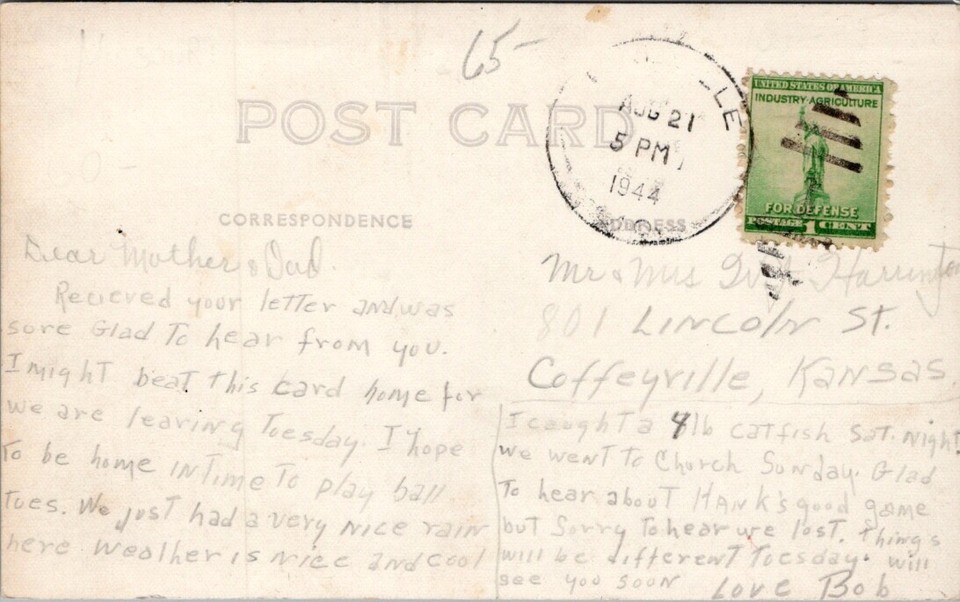 65-
POST CARD
LE
AUG 21
5 PM
1944
UNITED STATES OF AMERICA
INDUSTRY AGRICULTURE
FOR DEFENSE
POSTAGE 1 CENT
CORRESPONDENCE
ADDRESS
Dear Mother & Dad.
Recieved your letter and was
sore Glad To hear from you.
I might beat this card home for
we are learing Tuesday. I hope
To be home in Time To play ball
Tues. We just had a very nice rain
here weather is nice and cool
Mr & Mrs Harrington
801 Lincoln St.
Coffeyville, Kansas.
I caught a 8lb catfish Sat. night.
we went to Church Sunday. Glad
To hear about Hank's good game
but Sorry To hear we lost. Things
will be different Tuesday. will
see you soon Love Bob